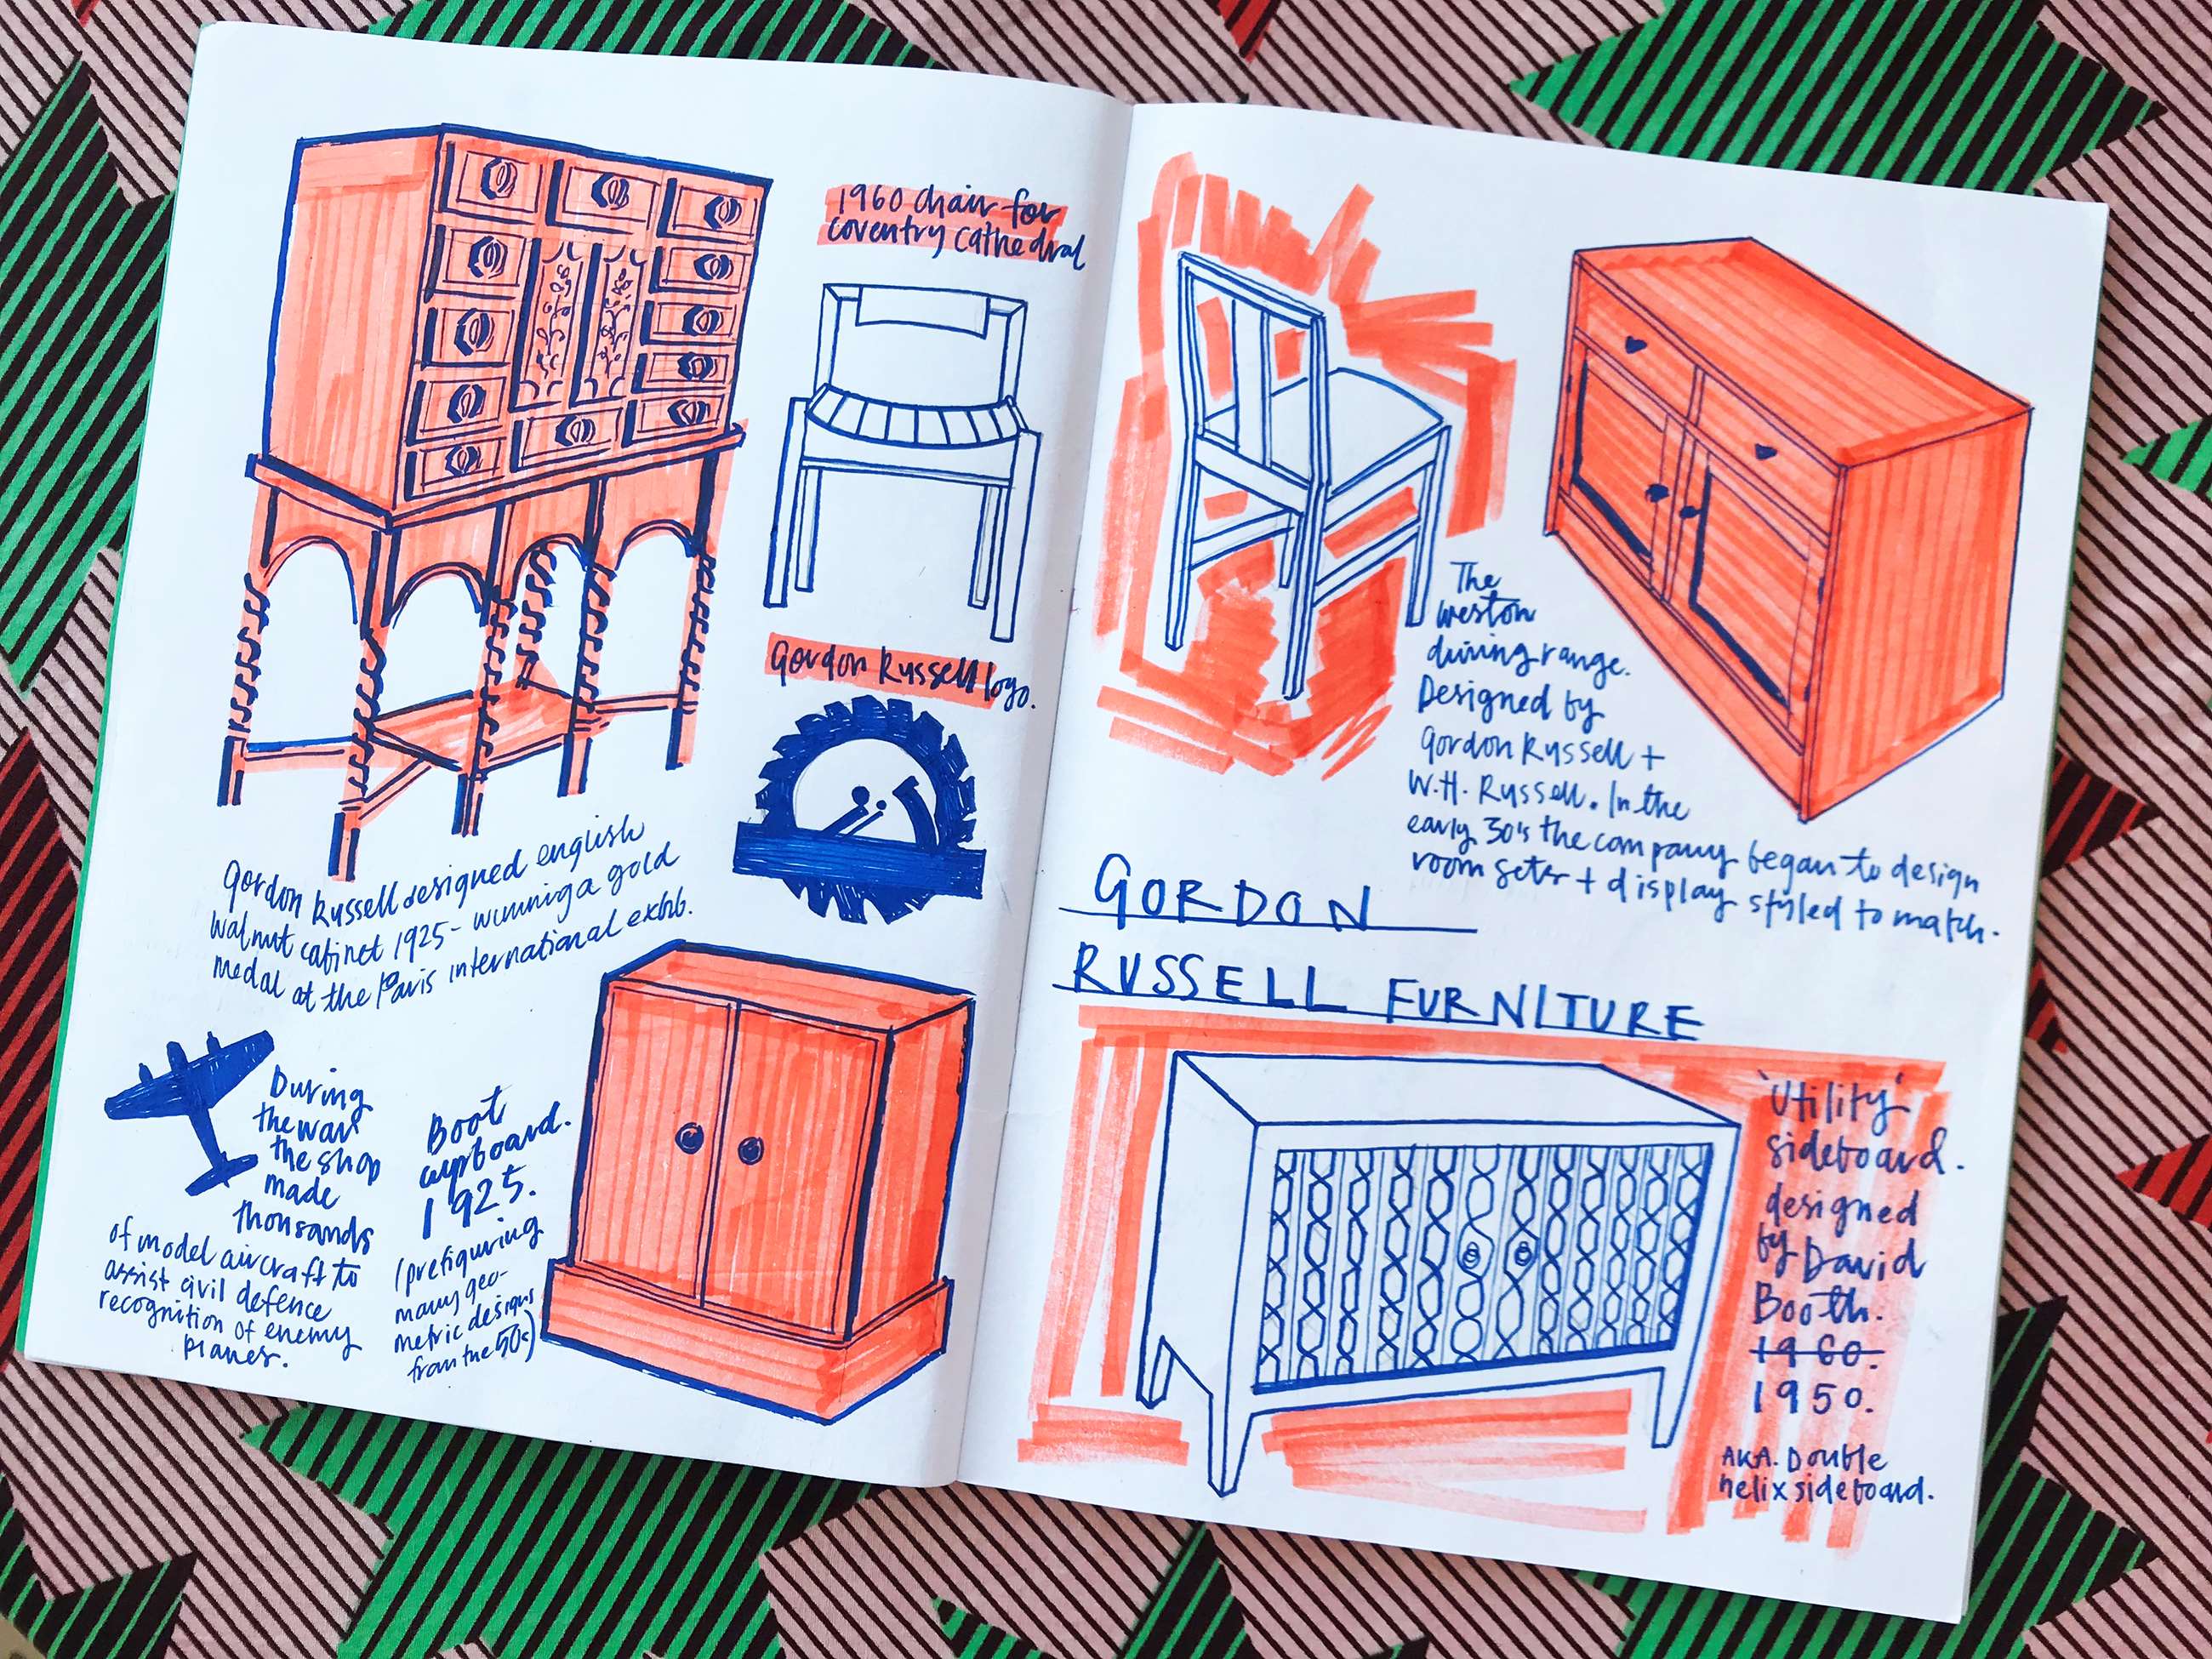 1960 chair for
coventry cathedral
Gordon Russell logo.
Gordon Russell designed english
walnut cabinet 1925 - winning a gold
medal at the Paris international exhib.
During
the war
the shop
made
thousands
of model aircraft to
assist civil defence
recognition of enemy
planes.
Boot
cupboard.
1925.
(prefiguring
many geo-
metric designs
from the 50s)
The
Weston
dining range.
Designed by
Gordon Russell +
W.H. Russell. In the
early 30's the company began to design
room sets + display styled to match.
GORDON
RUSSELL FURNITURE
'Utility'
sideboard.
designed
by David
Booth.
1960.
1950.
AKA. Double
helix sideboard.